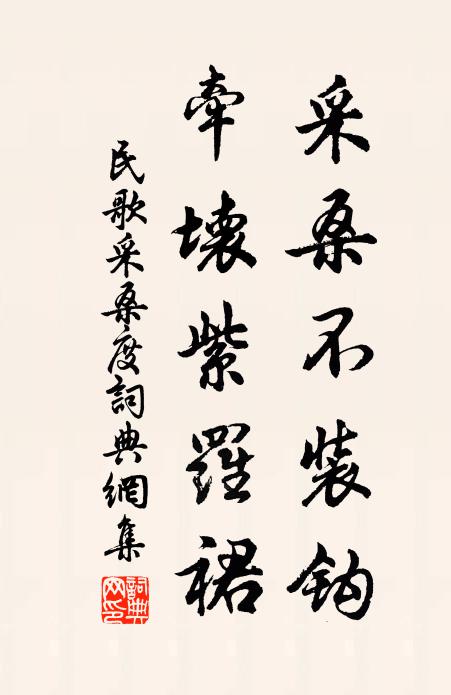 采桑不装鈎
牽壞紫羅裙
民歌采桑度詞典網集
詞典网印